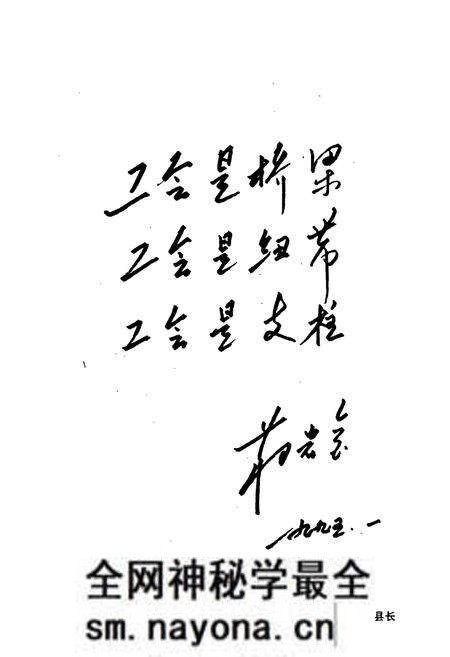 工会是桥梁
工会是纽带
工会是支柱
一九九五.一
全网神秘学最全
sm.nayona.cn
县长